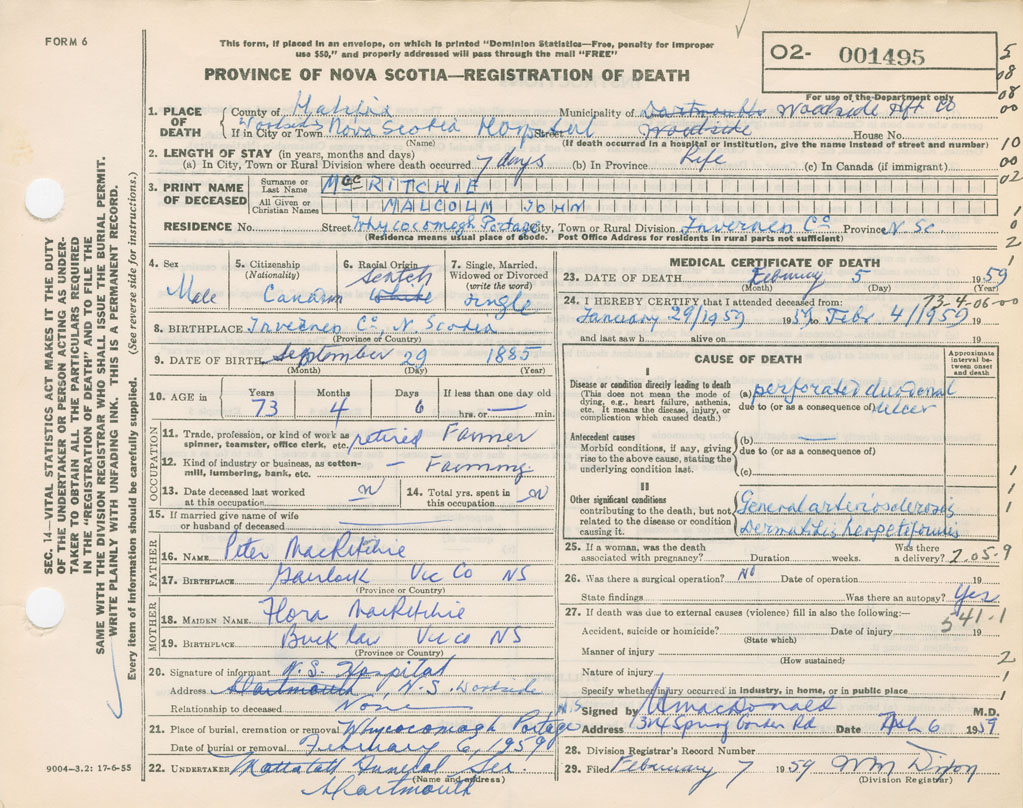 FORM 6
This form, if placed in an envelope, on which is printed "Dominion Statistics—Free, penalty for improper
use $50," and properly addressed will pass through the mail "FREE"
PROVINCE OF NOVA SCOTIA—REGISTRATION OF DEATH
O2- 001495
For use of the Department only
5
08
08
00
10
00
02
1
0
2
1. PLACE OF DEATH
County of Halifax Municipality of Dartmouth Woodside Hfx Co
Woodside
If in City or Town Nova Scotia Hospital Street Woodside House No.
(Name) (If death occurred in a hospital or institution, give the name instead of street and number)
2. LENGTH OF STAY (in years, months and days)
(a) In City, Town or Rural Division where death occurred 7 days (b) In Province Life (c) In Canada (if immigrant)
3. PRINT NAME OF DECEASED
Surname or Last Name MacRITCHIE
All Given or Christian Names MALCOLM JOHN
RESIDENCE No. Street Whycocomagh Portage City, Town or Rural Division Inverness Co Province N Sc.
(Residence means usual place of abode. Post Office Address for residents in rural parts not sufficient)
4. Sex Male
5. Citizenship (Nationality) Canadian
6. Racial Origin Scotch White
7. Single, Married, Widowed or Divorced (write the word) single
8. BIRTHPLACE Inverness Co, N. Scotia
(Province or Country)
9. DATE OF BIRTH September 29 1885
(Month) (Day) (Year)
10. AGE in Years Months Days If less than one day old
73 4 6 hrs. or — min.
OCCUPATION
11. Trade, profession, or kind of work as spinner, teamster, office clerk, etc. retired Farmer
12. Kind of industry or business, as cotton-mill, lumbering, bank, etc. — Farming
13. Date deceased last worked at this occupation
14. Total yrs. spent in this occupation
15. If married give name of wife or husband of deceased
FATHER
16. NAME Peter MacRitchie
17. BIRTHPLACE Gairloch Vic Co NS
(Province or Country)
MOTHER
18. MAIDEN NAME Flora MacRitchie
19. BIRTHPLACE Bucklaw Vic Co NS
(Province or Country)
20. Signature of informant N.S. Hospital
Address Dartmouth, N.S. Woodside
Relationship to deceased None
21. Place of burial, cremation or removal Whycocomagh Portage N.S
Date of burial or removal February 6, 1959
22. UNDERTAKER Mattatall Funeral Ser.
(Name and address)
Dartmouth
9004—3.2: 17-6-55
MEDICAL CERTIFICATE OF DEATH
23. DATE OF DEATH February 5 1959
(Month) (Day) (Year)
24. I HEREBY CERTIFY that I attended deceased from: 73-4-06-00
January 29/1959 1959 to Feb. 4/1959 19
and last saw h alive on 19
CAUSE OF DEATH
Approximate interval between onset and death
I
Disease or condition directly leading to death
(This does not mean the mode of dying, e.g., heart failure, asthenia, etc. It means the disease, injury, or complication which caused death.)
(a) perforated duodenal
due to (or as a consequence of) ulcer
Antecedent causes
Morbid conditions, if any, giving rise to the above cause, stating the underlying condition last.
(b) —
due to (or as a consequence of)
(c)
II
Other significant conditions
contributing to the death, but not related to the disease or condition causing it.
General arteriosclerosis
Dermatitis herpetiformis
1
1
1
25. If a woman, was the death associated with pregnancy? Duration weeks. Was there a delivery? 2.05.9
26. Was there a surgical operation? No Date of operation 19
State findings Was there an autopsy? Yes
27. If death was due to external causes (violence) fill in also the following:— 541-1
Accident, suicide or homicide? Date of injury 19
(State which)
Manner of injury 2
(How sustained)
Nature of injury 1
Specify whether injury occurred in industry, in home, or in public place 1
Signed by MacDonald M.D.
Address 1344 Spring Garden Rd Date Feb 6 1959
28. Division Registrar's Record Number
29. Filed February 7 1959 Wm Dixon
(Division Registrar)
SEC. 14—VITAL STATISTICS ACT MAKES IT THE DUTY
OF THE UNDERTAKER OR PERSON ACTING AS UNDER-
TAKER TO OBTAIN ALL THE PARTICULARS REQUIRED
IN THE "REGISTRATION OF DEATH" AND TO FILE THE
SAME WITH THE DIVISION REGISTRAR WHO SHALL ISSUE THE BURIAL PERMIT.
WRITE PLAINLY WITH UNFADING INK. THIS IS A PERMANENT RECORD.
Every item of information should be carefully supplied. (See reverse side for instructions.)